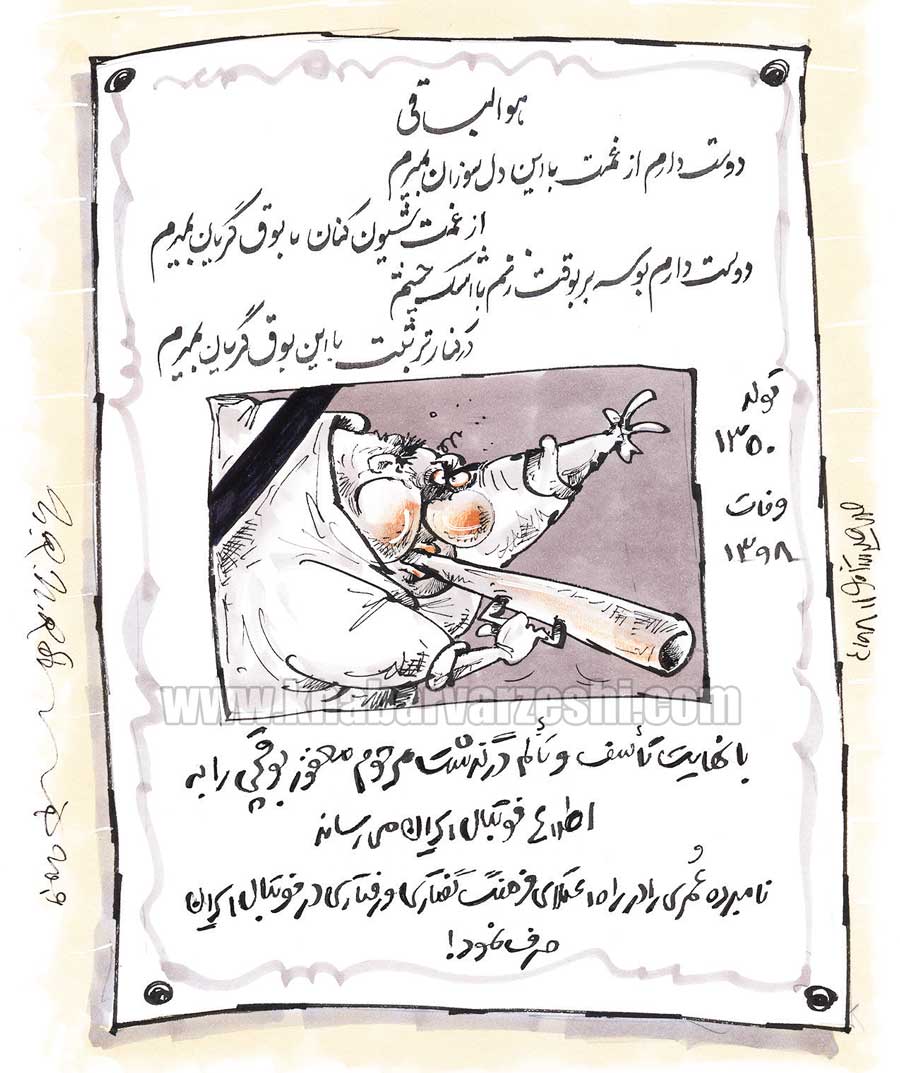 هوالباقی
دوست دارم از غمت با این دل سوزان بمیرم
از غمت شیون کنان با بوق گریان بمیرم
دوست دارم بوسه بر بوقت زنم با اشک چشم
در کنار تربتت با این بوق گریان بمیرم
تولد
۱۳۵۰
وفات
۱۳۹۸
www.khabarvarzeshi.com
با نهایت تأسف و تألم درگذشت مرحوم مغفور بوقچی را به
اطلاع فوتبال ایران می رساند
نامبرده عُمری را در راه اعتلای فرهنگ گفتاری و رفتاری در فوتبال ایران
صرف نمود!